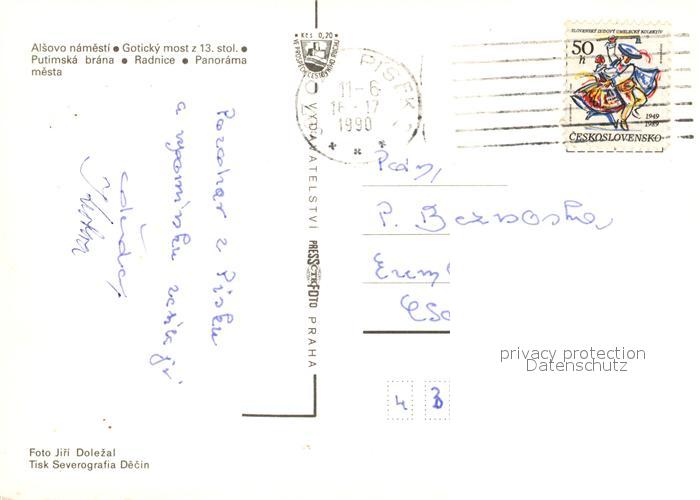 Alšovo náměstí ● Gotický most z 13. stol. ●
Putimská brána ● Radnice ● Panoráma
města
Pozdrav z Písku
a vzpomínku
Kčs 0,20
VE PROSPĚCH CESTOVNÍHO RUCHU
VYDAVATELSTVÍ PRESSFOTO PRAHA
PÍSEK
11-6
16-17
1990
SLOVENSKÝ ĽUDOVÝ UMELECKÝ KOLEKTÍV
50
h
1949
1989
ČESKOSLOVENSKO
Paní
P.
4 3
privacy protection
Datenschutz
Foto Jiří Doležal
Tisk Severografia Děčín